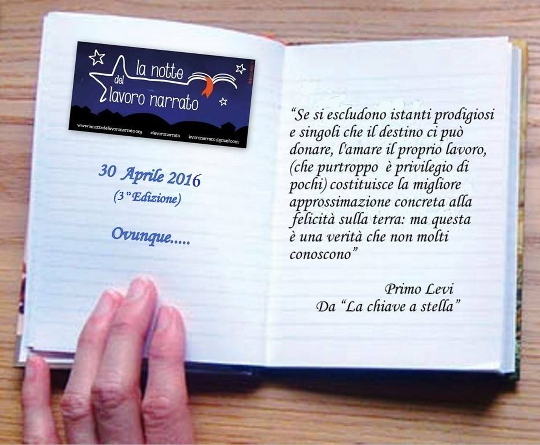 la notte
del
lavoro narrato
www.lanottedellavoronarrato.org #lavoronarrato lavoronarrato@gmail.com
30 Aprile 2016
(3°Edizione)
Ovunque.....
“Se si escludono istanti prodigiosi
e singoli che il destino ci può
donare, l'amare il proprio lavoro,
(che purtroppo è privilegio di
pochi) costituisce la migliore
approssimazione concreta alla
felicità sulla terra: ma questa
è una verità che non molti
conoscono”
Primo Levi
Da “La chiave a stella”